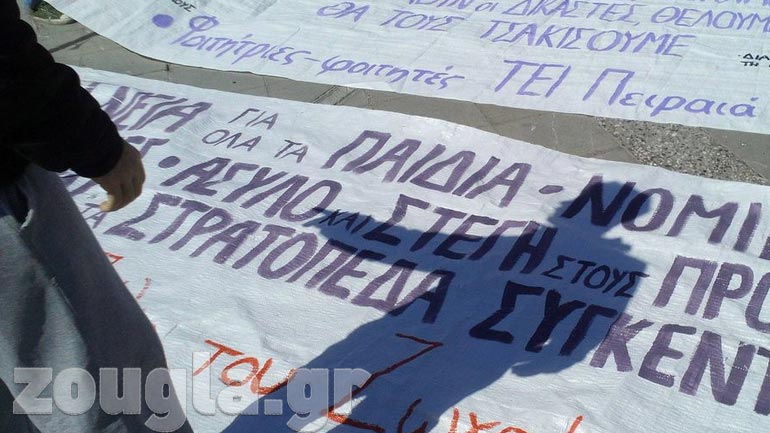 ΔΙΚΑΣΤΕΣ ΘΕΛΟΥΜΕ
ΘΑ ΤΟΥΣ ΤΣΑΚΙΣΟΥΜΕ
• Φοιτήτριες-φοιτητές ΤΕΙ Πειραιά
ΓΙΑ ΟΛΑ ΤΑ ΠΑΙΔΙΑ - ΝΟΜΙΜ
• ΑΣΥΛΟ ΚΑΙ ΣΤΕΓΗ ΣΤΟΥΣ ΠΡΟ
ΤΑ ΣΤΡΑΤΟΠΕΔΑ ΣΥΓΚΕΝΤ
του
zougla.gr